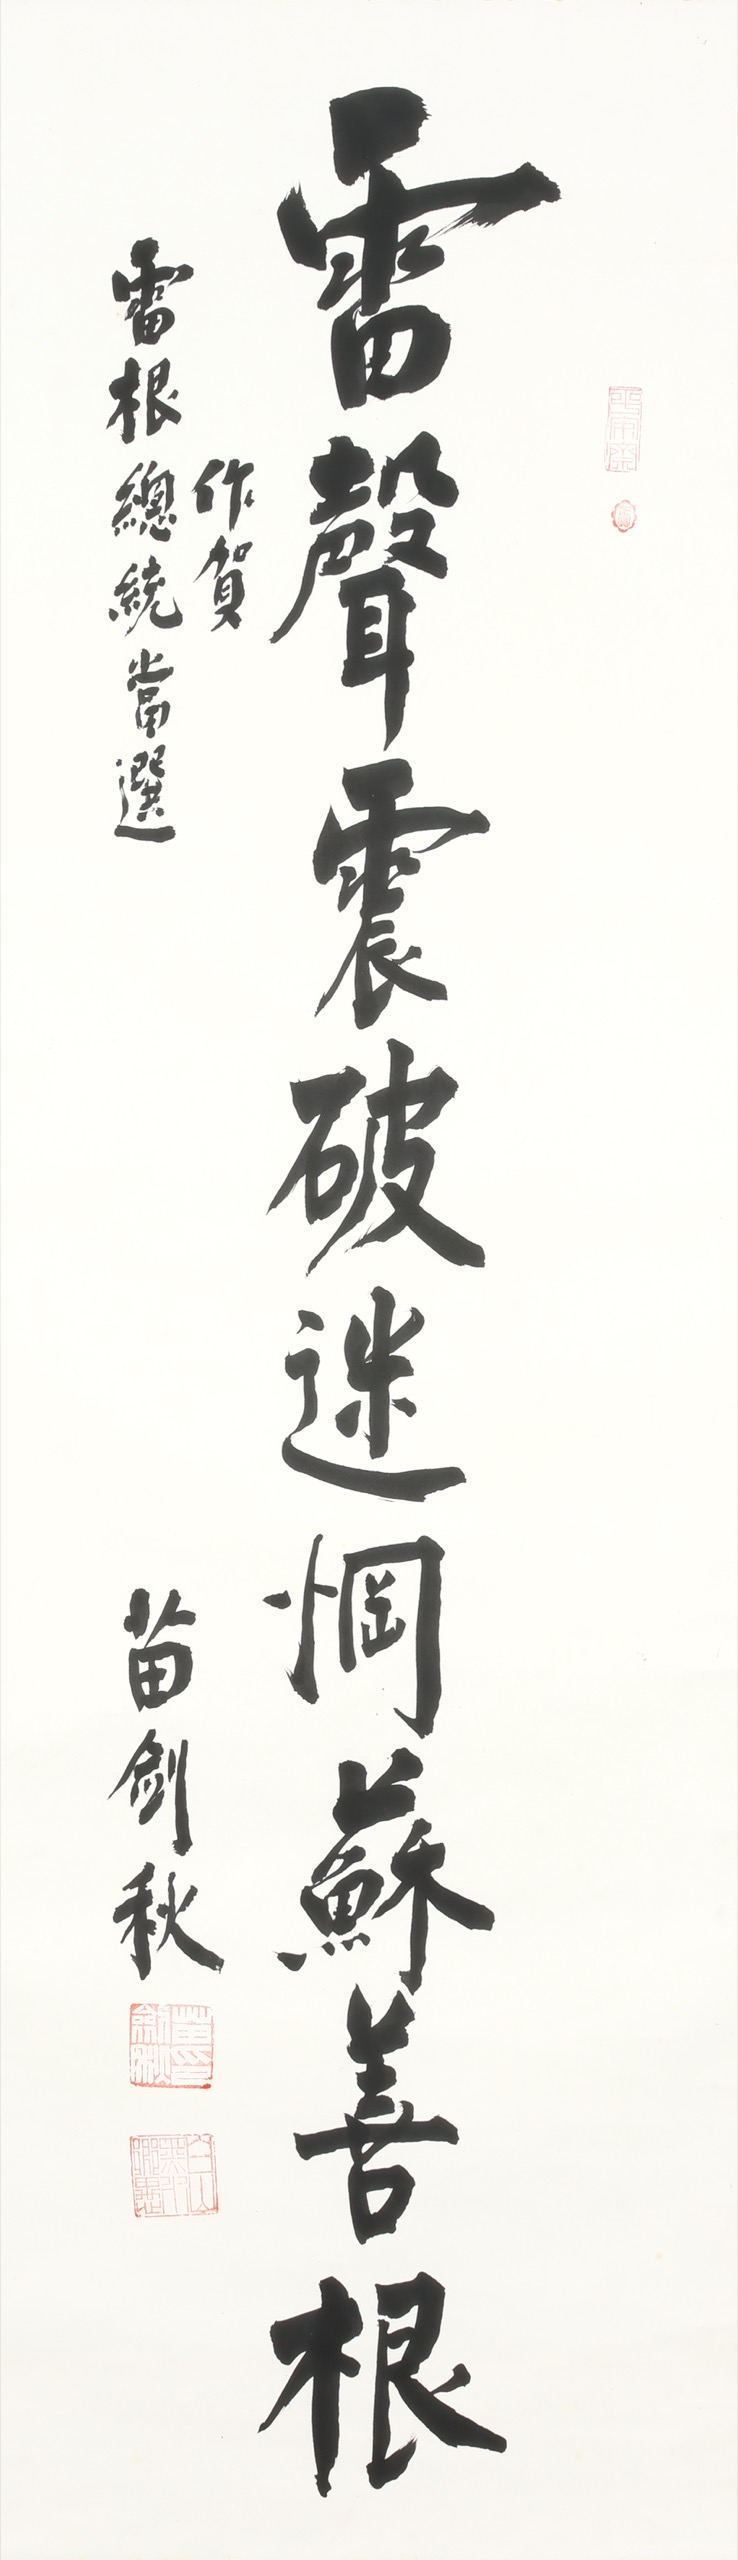 雷聲震破迷惘蘇善根
作賀
雷根總統當選
苗劍秋